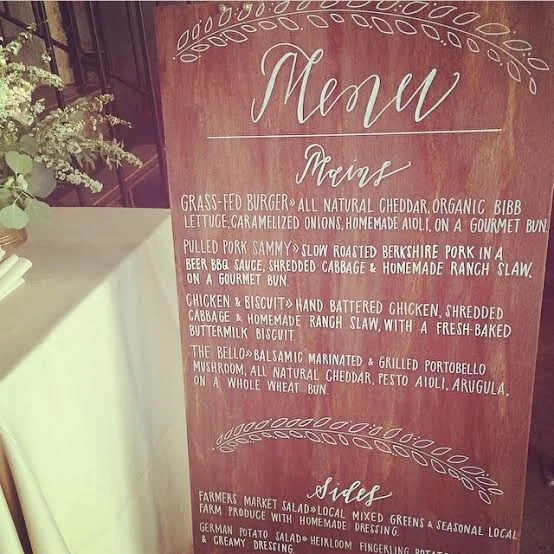 Menu
Mains
GRASS-FED BURGER» ALL NATURAL CHEDDAR, ORGANIC BIBB
LETTUCE, CARAMELIZED ONIONS, HOMEMADE AIOLI, ON A GOURMET BUN.
PULLED PORK SAMMY» SLOW ROASTED BERKSHIRE PORK IN A
BEER BBQ SAUCE, SHREDDED CABBAGE & HOMEMADE RANCH SLAW,
ON A GOURMET BUN.
CHICKEN & BISCUIT» HAND BATTERED CHICKEN, SHREDDED
CABBAGE & HOMEMADE RANCH SLAW, WITH A FRESH-BAKED
BUTTERMILK BISCUIT.
THE BELLO» BALSAMIC MARINATED & GRILLED PORTOBELLO
MUSHROOM, ALL NATURAL CHEDDAR, PESTO AIOLI, ARUGULA,
ON A WHOLE WHEAT BUN.
Sides
FARMERS MARKET SALAD» LOCAL MIXED GREENS & SEASONAL LOCAL
FARM PRODUCE WITH HOMEMADE DRESSING.
GERMAN POTATO SALAD» HEIRLOOM FINGERLING POTATO
& CREAMY DRESSING.